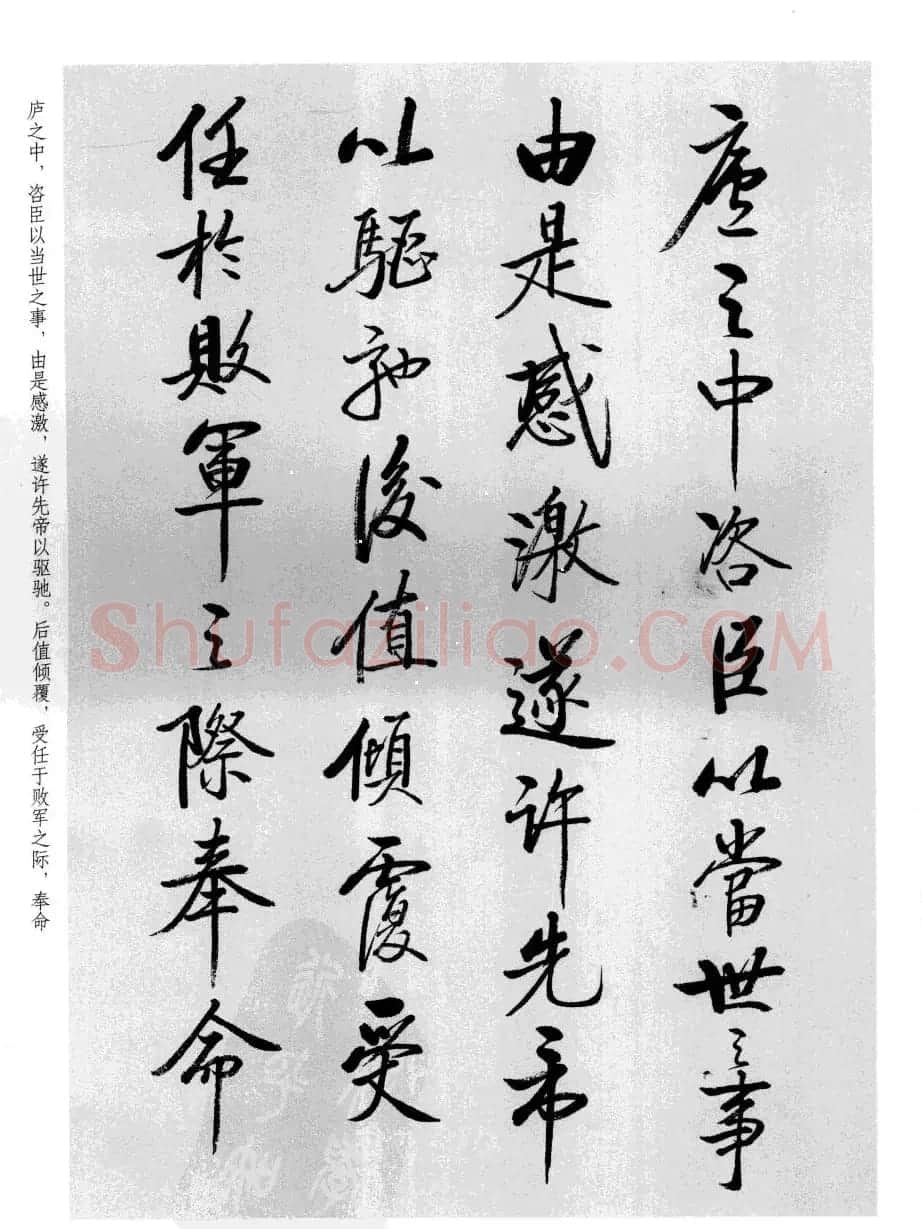 廬之中咨臣以當世之事
由是感激遂许先帝
以驅馳後值傾覆受
任於敗軍之際奉命
庐之中，咨臣以当世之事，由是感激，遂许先帝以驱驰。后值倾覆，受任于败军之际，奉命
Shufaziliao.COM